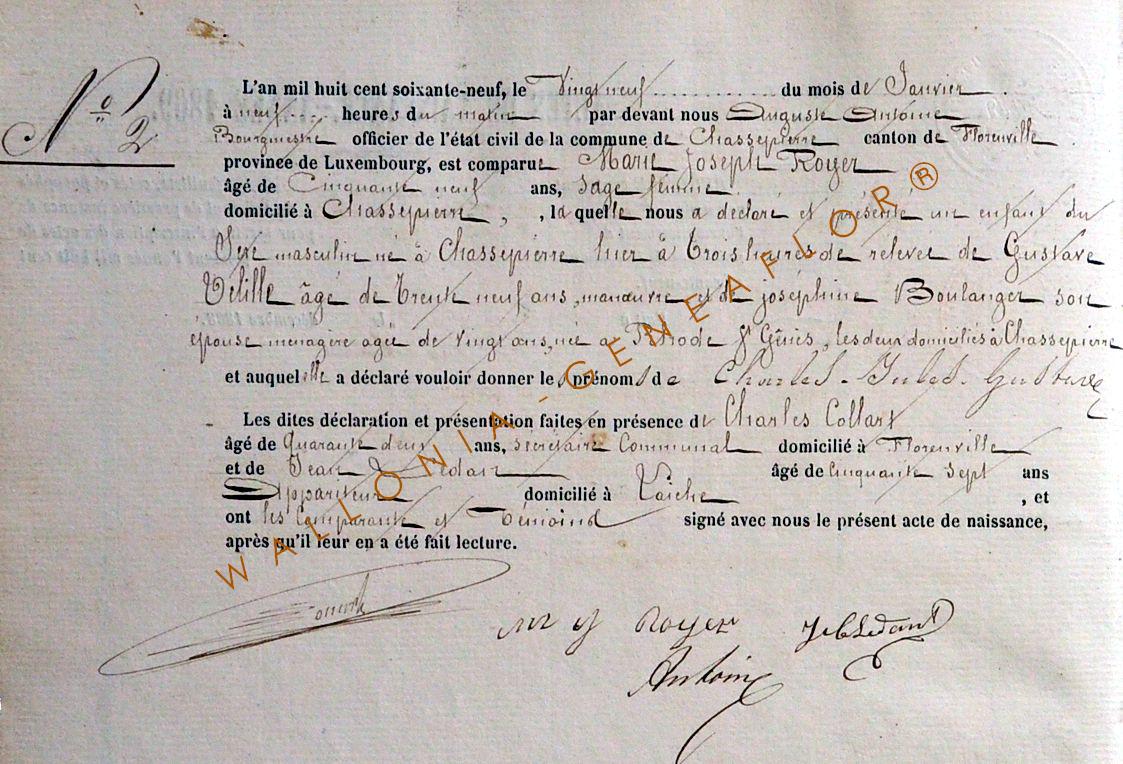 N° 2
L'an mil huit cent soixante-neuf, le Vingt neuf du mois de Janvier
à neuf heures du matin par devant nous Auguste Antoine
Bourgmestre officier de l'état civil de la commune de Chassepierre canton de Florenville
province de Luxembourg, est comparue Marie Joseph Royer
âgé de Cinquante neuf ans, Sage femme
domicilié à Chassepierre, , la quelle nous a déclaré et présenté un enfant du
Sexe masculin né à Chassepierre hier à trois heures de relevée de Gustave
âgé de trente neuf ans, manœuvre et de joséphine Boulanger son
épouse ménagère agée de vingt ans, née a Rhode St Génès, les deux domiciliés à Chassepierre
et auquel elle a déclaré vouloir donner les prénoms de Charles-Jules-Gustave
Les dites déclaration et présentation faites en présence de Charles Collart
âgé de Quarante deux ans, Secrétaire Communal domicilié à Florenville
et de Jean âgé de Cinquante Sept ans
Appariteur domicilié à Laiche , et
ont les Comparante et Témoins signé avec nous le présent acte de naissance,
après qu'il leur en a été fait lecture.
Royer
Antoine
WALLONIA-GENEAFLOR®